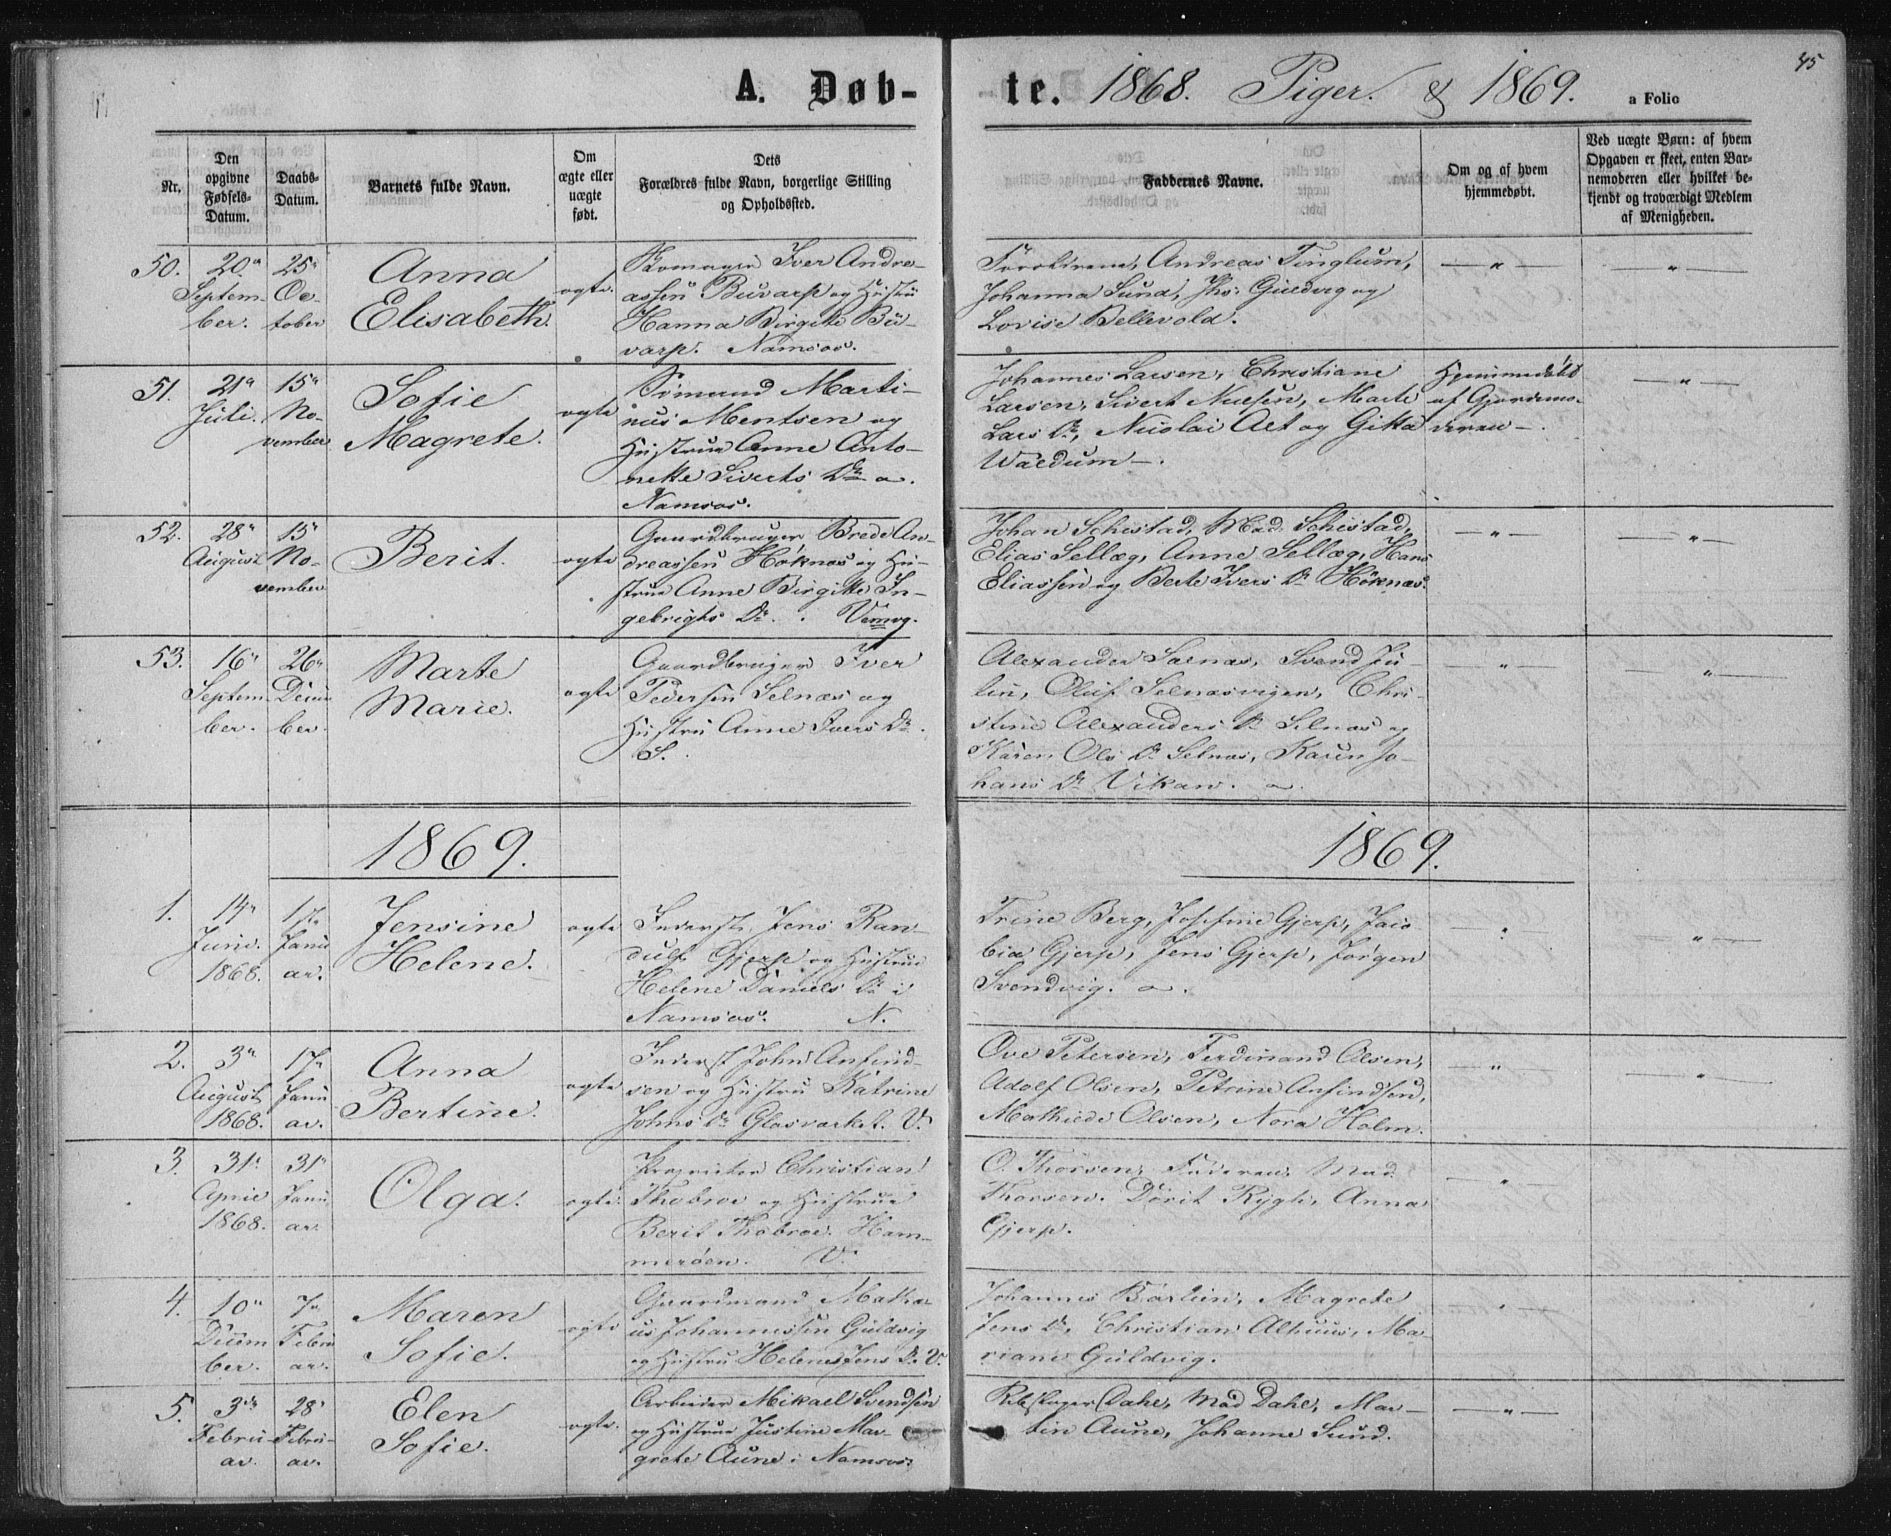 45
A. Døb-
te. 1868. Piger. & 1869. a Folio
Nr.
Den
opgivne
Fødsels-
Datum.
Daabs-
Datum.
Barnets fulde Navn.
Om
ægte eller
uægte
født.
Dets
Forældres fulde Navn, borgerlige Stilling
og Opholdssted.
Faddernes Navne.
Om og af hvem
hjemmedøbt.
Ved uægte Børn: af hvem
Opgaven er skeet, enten Bar-
nemoderen eller hvilket be-
kjendt og troværdigt Medlem
af Menigheden.
50.
20de
Septem-
ber.
25de
Oc-
tober
Anna
Elisabeth.
ægte.
Iver Andre-
assen Buvarp og Hustru
Hanna Birgitte Bu-
varp. Namsos.
Andreas Tinglum,
Johanna Sund, Jhs: Guldvig og
Lovise Bellevold.
—"—
—"—
51.
21de
Juli.
15de
No-
vember
Sofie
Magrete.
ægte
Sømand Marti-
nus Mentsen og
Hustrue Anne Anto-
nette Siverts Dr
Namsos.
Johannes Larsen, Christiane
Larsen, Sivert Nielsen, Marte
Lars Dr, Nicolai Aet og Gitta
Waldum—.
Hjemmedøbt
af Gjordemo-
deren—.
—"—
52.
28de
August
15de
No-
vember
Berit.
ægte
Gaardbruger Brede An-
dreassen Høknes og Hu-
strue Anne Birgitte In-
gebrigts Dr. Vemog.
Johan Schistad, Mad. Schistad,
Elias Sellæg, Anne Sellæg, Hans
Eliassen og Berte Ivers Dr Høknes.
—"—
—"—
53.
16de
Septem-
ber.
26de
Decem-
ber.
Marte
Marie.
ægte
Gaardbruger Iver
Pedersen Selnæs og
Hustru Anne Ivers Dr.
S.
Alexander Salnæs, Svend Ju-
lin, Oluf Selnæsvigen, Chri-
stine Alexanders Dr Selnæs og
Karen Ols Dr Selnæs, Karen Jo-
hans Dr Vikan.
—"—
—"—
1869.
1869.
1.
14de
Juni.
1868.
1ste
Janu-
ar.
Jensine
Helene.
ægte
Inderst Jens Ran-
dulf Gjerp og Hustrue
Helene Daniels Dr i
Namsos. N.
Trine Berg, Josefine Gjerp, Jaco-
bia Gjerp, Jens Gjerp, Jørgen
Svendvig.
—"—
—"—
2.
3de
August
1868.
17de
Janu-
ar.
Anna
Bertine.
ægte
Inderst John Anfind-
sen og Hustru Katrine
Johns Dr Glasværket. V.
Ove Petersen, Ferdinand Olsen,
Adolf Olsen, Petrine Anfindsen,
Mathilde Olsen, Nora Holm.
—"—
—"—
3.
31de
April
1868.
31de
Janu-
ar.
Olga.
ægte.
Proprietær Christian
Thobroe og Hustrue
Berit Thobroe. Ham-
merøen. V.
O. Thorsen, Faderen, Mad.
Thorsen. Dorit Rygh, Anna
Gjerp.
—"—
4.
10de
Decem-
ber.
7de
Febru-
ar.
Maren
Sofie.
ægte
Gaardmand Mathæ-
us Johannessen Guldvig
og Hustru Helene Jens Dr V.
Johannes Barlien, Magrete
Jens Dr, Christian Alhuus, Ma-
riane Guldvig.
—"—
5.
3die
Febru-
ar.
28de
Febru-
ar.
Elen
Sofie.
ægte.
Arbeider Mikael Svendsen
og Hustrue Justine Mar-
grete Aune i Namsos.
Dahl, Mad Dahl, Mar-
tin Aune, Johanne Sund.
—"—